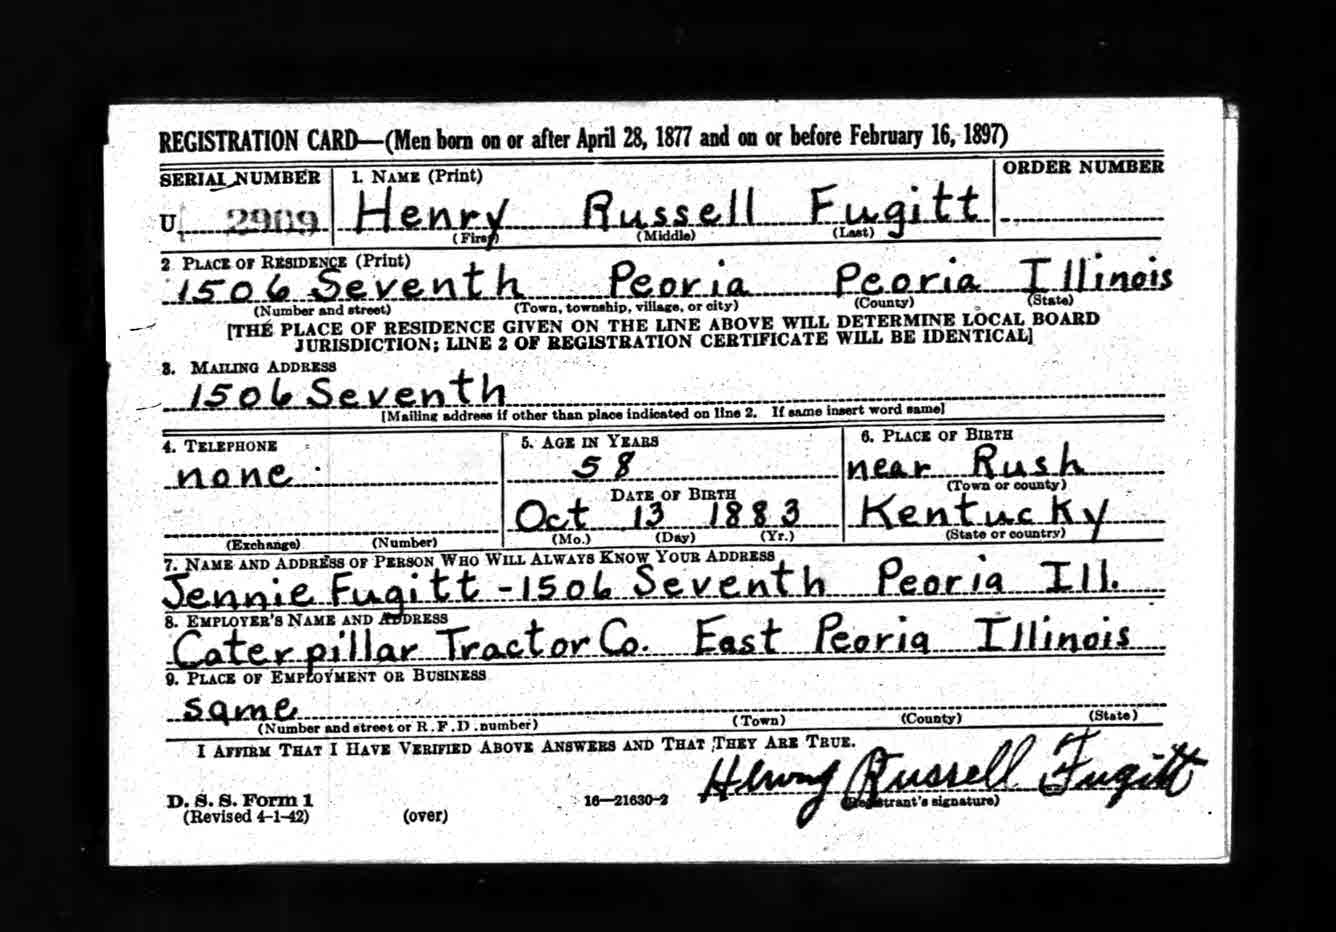 REGISTRATION CARD—(Men born on or after April 28, 1877 and on or before February 16, 1897)
SERIAL NUMBER 1. NAME (Print) ORDER NUMBER
U 2909 Henry Russell Fugitt
(First) (Middle) (Last)
2 PLACE OF RESIDENCE (Print)
1506 Seventh Peoria Peoria Illinois
(Number and street) (Town, township, village, or city) (County) (State)
[THE PLACE OF RESIDENCE GIVEN ON THE LINE ABOVE WILL DETERMINE LOCAL BOARD
JURISDICTION; LINE 2 OF REGISTRATION CERTIFICATE WILL BE IDENTICAL]
3. MAILING ADDRESS
1506 Seventh
[Mailing address if other than place indicated on line 2. If same insert word same]
4. TELEPHONE 5. AGE IN YEARS 6. PLACE OF BIRTH
none 58 near Rush
(Town or county)
DATE OF BIRTH
Oct 13 1883 Kentucky
(Exchange) (Number) (Mo.) (Day) (Yr.) (State or country)
7. NAME AND ADDRESS OF PERSON WHO WILL ALWAYS KNOW YOUR ADDRESS
Jennie Fugitt - 1506 Seventh Peoria Ill.
8. EMPLOYER'S NAME AND ADDRESS
Caterpillar Tractor Co. East Peoria Illinois
9. PLACE OF EMPLOYMENT OR BUSINESS
same
(Number and street or R. F. D. number) (Town) (County) (State)
I AFFIRM THAT I HAVE VERIFIED ABOVE ANSWERS AND THAT THEY ARE TRUE.
Henry Russell Fugitt
D. S. S. Form 1 16—21630-2 (Registrant's signature)
(Revised 4-1-42) (over)